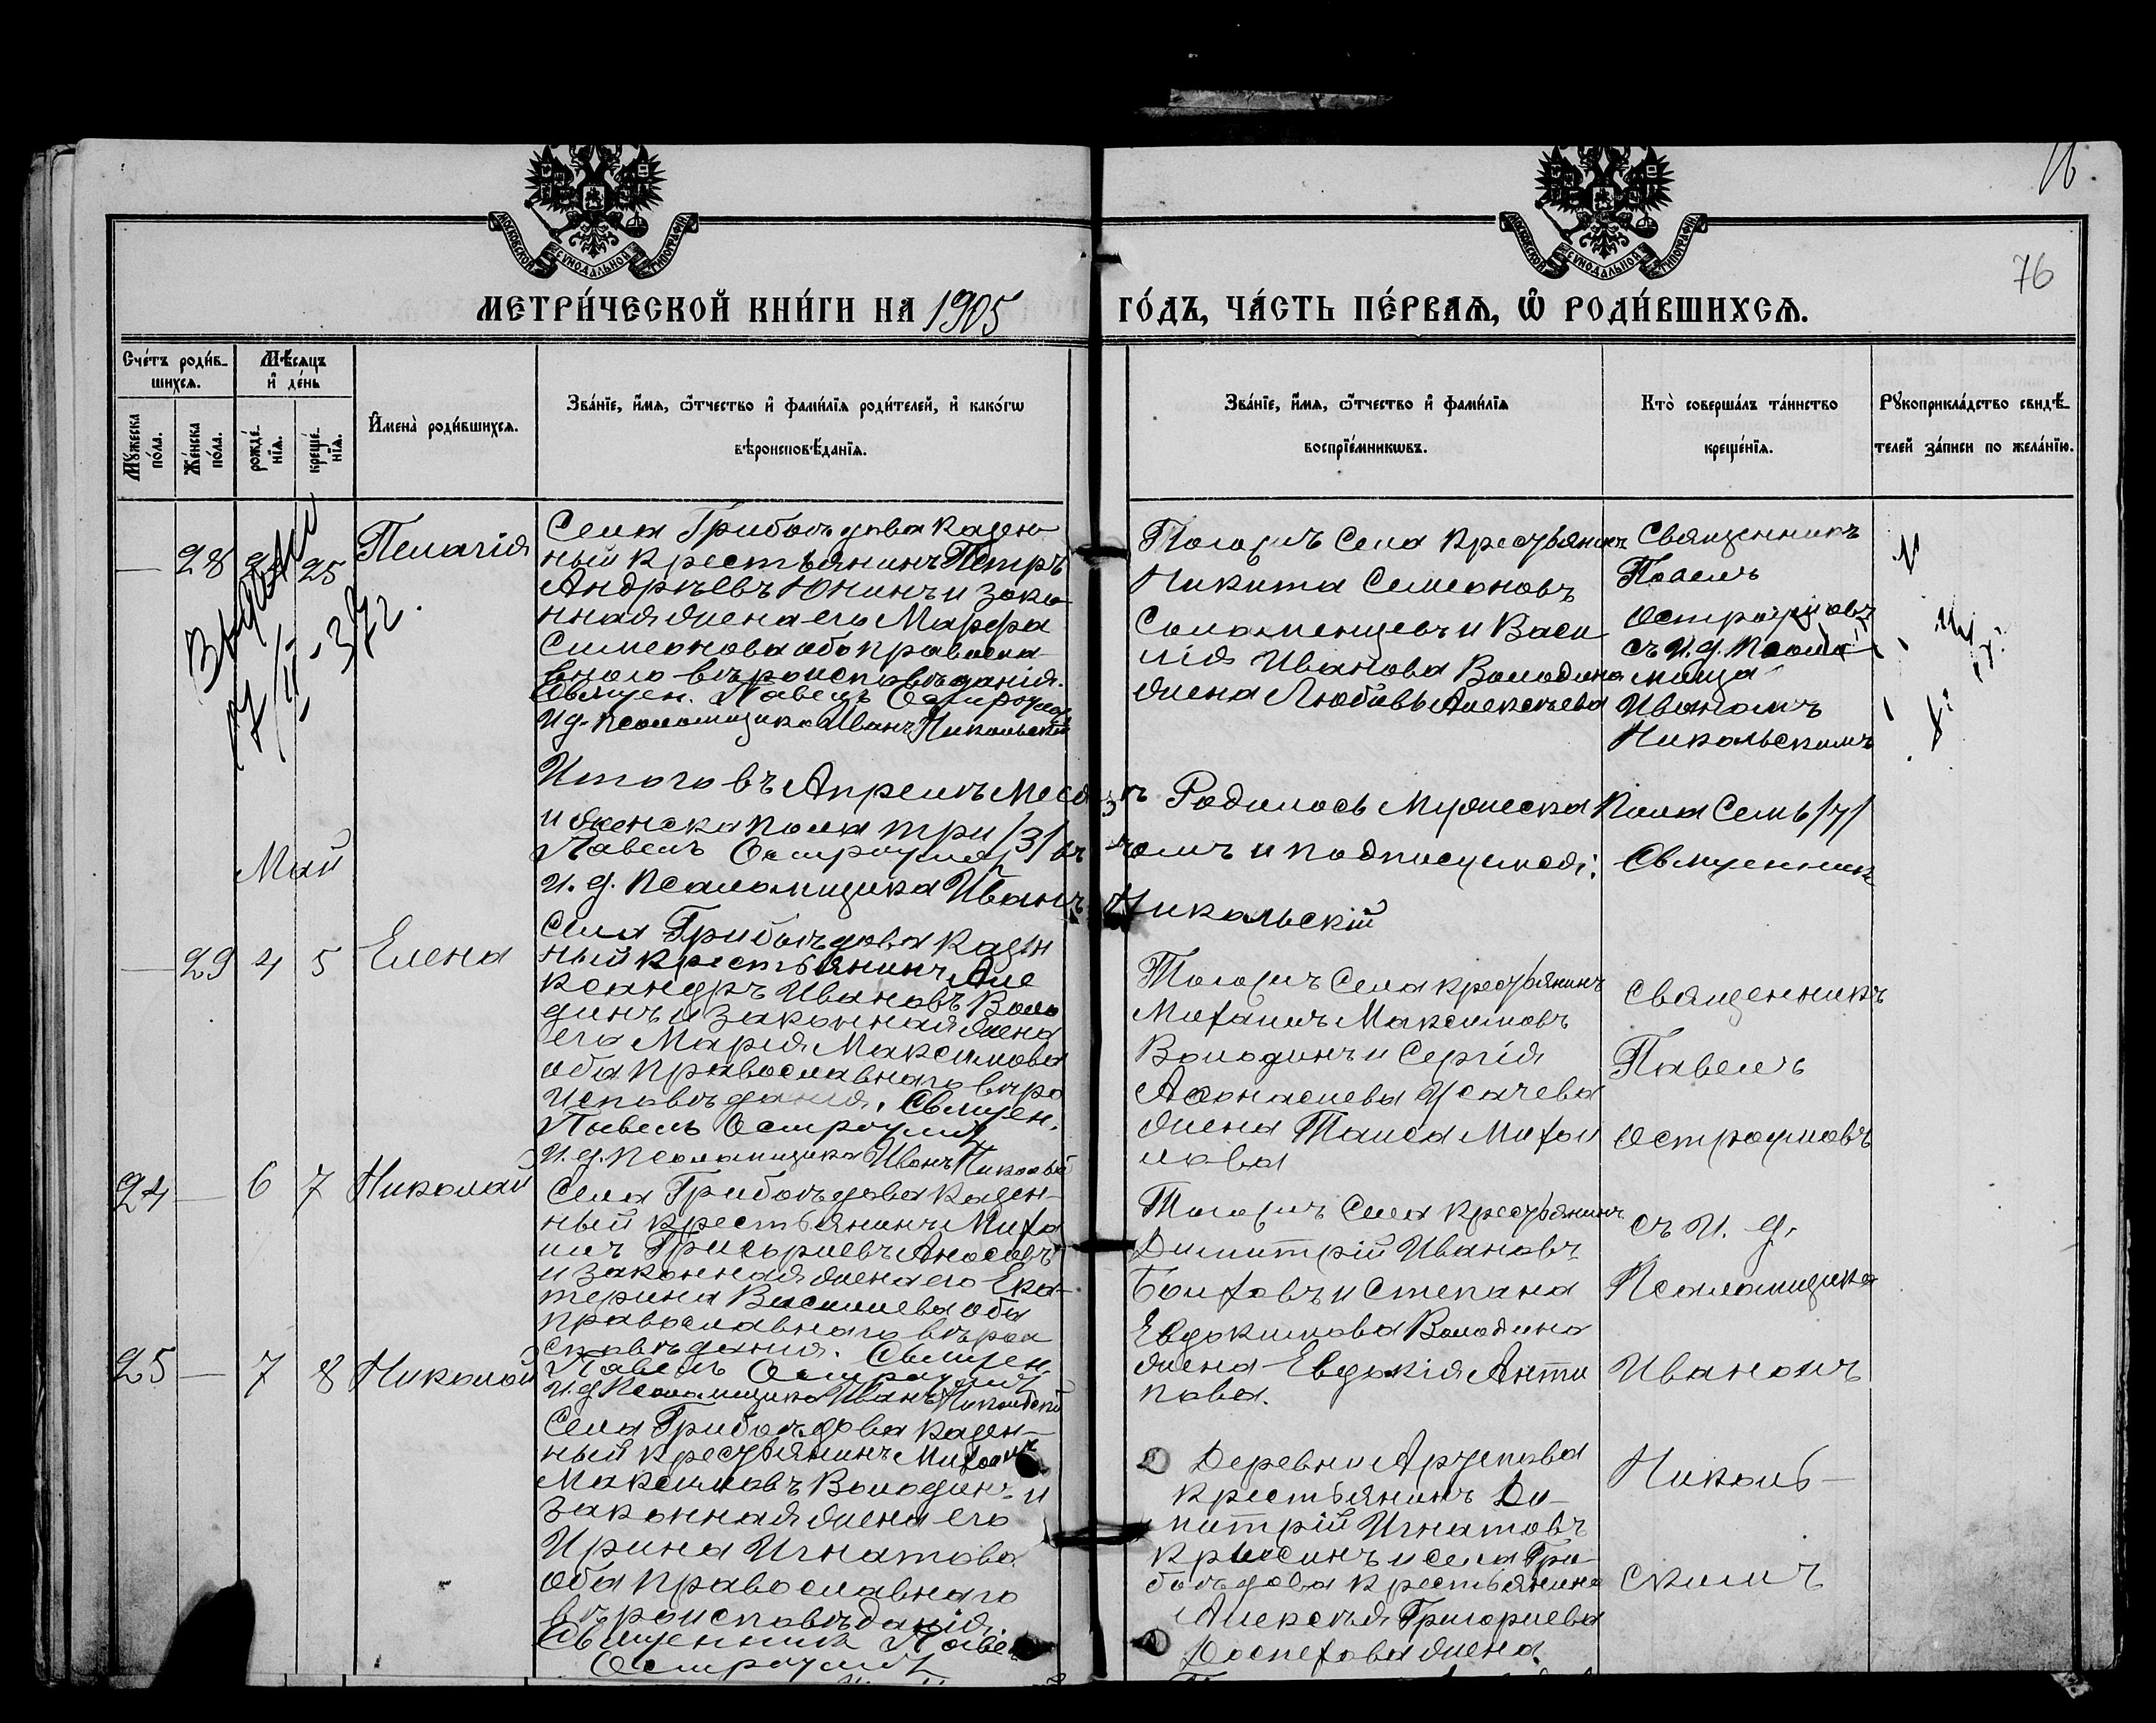 16.
76
МОСКОВСКОЙ СУНОДАЛЬНОЙ ТИПОГРАФІИ
МОСКОВСКОЙ СУНОДАЛЬНОЙ ТИПОГРАФІИ
МЕТРИ́ЧЕСКОЙ КНИ́ГИ НА 1905 ГО́ДЪ, ЧА́СТЬ ПЕ́РВАѦ, Ѽ РОДИ́ВШИХСѦ.
Сче́тъ роди́в-
шихсѧ.
Мꙋ́жеска по́ла.
Же́нска по́ла.
Мѣ́сѧцъ
и҆ де́нь
рожде́-
нїѧ.
креще́-
нїѧ.
И҆мена̀ роди́вшихсѧ.
Зва́нїе, и҆́мѧ, ѻ҆́тчество и҆ фами́лїѧ роди́телей, и҆ како́гѡ
вѣроисповѣ́данїѧ.
Зва́нїе, и҆́мѧ, ѻ҆́тчество и҆ фами́лїѧ
воспрїе́мникѡвъ.
Кто̀ соверша́лъ та́инство
креще́нїѧ.
Рꙋкоприкла́дство свидѣ́-
телей за́писи по жела́нїю.
— 28 25 Пелагія
Села Грибоѣдова казен-
ный крестьянинъ Петръ
Андрѣевъ Юнинъ и зако
нная жена его Марѳа
Симеонова оба правосла
внаго вѣроисповѣданія.
Священ. Павелъ Остроумовъ
И д. Псаломщика Иванъ Никольскій
Тогожъ села крестьянинъ
Никита Семеновъ
Соломенцевъ и Васи
лія Иванова Володина
жена Любовь Алексѣева
Священникъ
Павелъ
Остроумовъ
съ И. д. Псало
мщика
Иваномъ
Никольскимъ
Итого въ Апрелѣ месяцѣ Родилось мужеска пола семь /7/
и женска пола три /3/ въ чомъ и подписуемся: Священникъ
Павелъ Остроумовъ
И. д. Псаломщика Иванъ Никольскій
Май
— 29 4 5 Елена
Села Грибоѣдова казен
ный крестьянинъ Але
ксандръ Ивановъ Воло
динъ и законная жена
его Марія Максимова
оба православнаго вѣро
исповѣданія. Священ.
Павелъ Остроумовъ
И. д. Псаломщика Иванъ Никольскій
Тогожъ села крестьянинъ
Михаилъ Максимовъ
Володинъ и Сергія
Аѳонасиева Усачева
жена Таиса Михаи
лова
Священникъ
Павелъ
Остроумовъ
24 — 6 7 Николай
Села Грибоѣдова казен-
ный крестьянинъ Миха
илъ Григориевъ Аносовъ
и законная жена его Ека-
терина Василиева оба
православнаго вѣрои
сповѣданія. Священ
Павелъ Остроумовъ
И.д. Псаломщика Иванъ Никольскій
Тогожъ села крестьянинъ
Димитрій Ивановъ
Болховъ и Степана
Евдокимова Володина
жена Евдокія Анти
пова.
съ И. д.
Псаломщика
Иваномъ
25 — 7 8 Николай
Села Грибоѣдова казен-
ный крестьянинъ Михаилъ
Максимовъ Володинъ и
законная жена его
Ирина Игнатова
оба православнаго
вѣроисповѣданія.
Священникъ Павелъ
Остроумовъ
Деревни
крестьянинъ Ди-
митрій Игнатовъ
и села Гри-
боѣдова крестьянина
Алексѣя Григориева
Доспехова жена
Николь-
скимъ